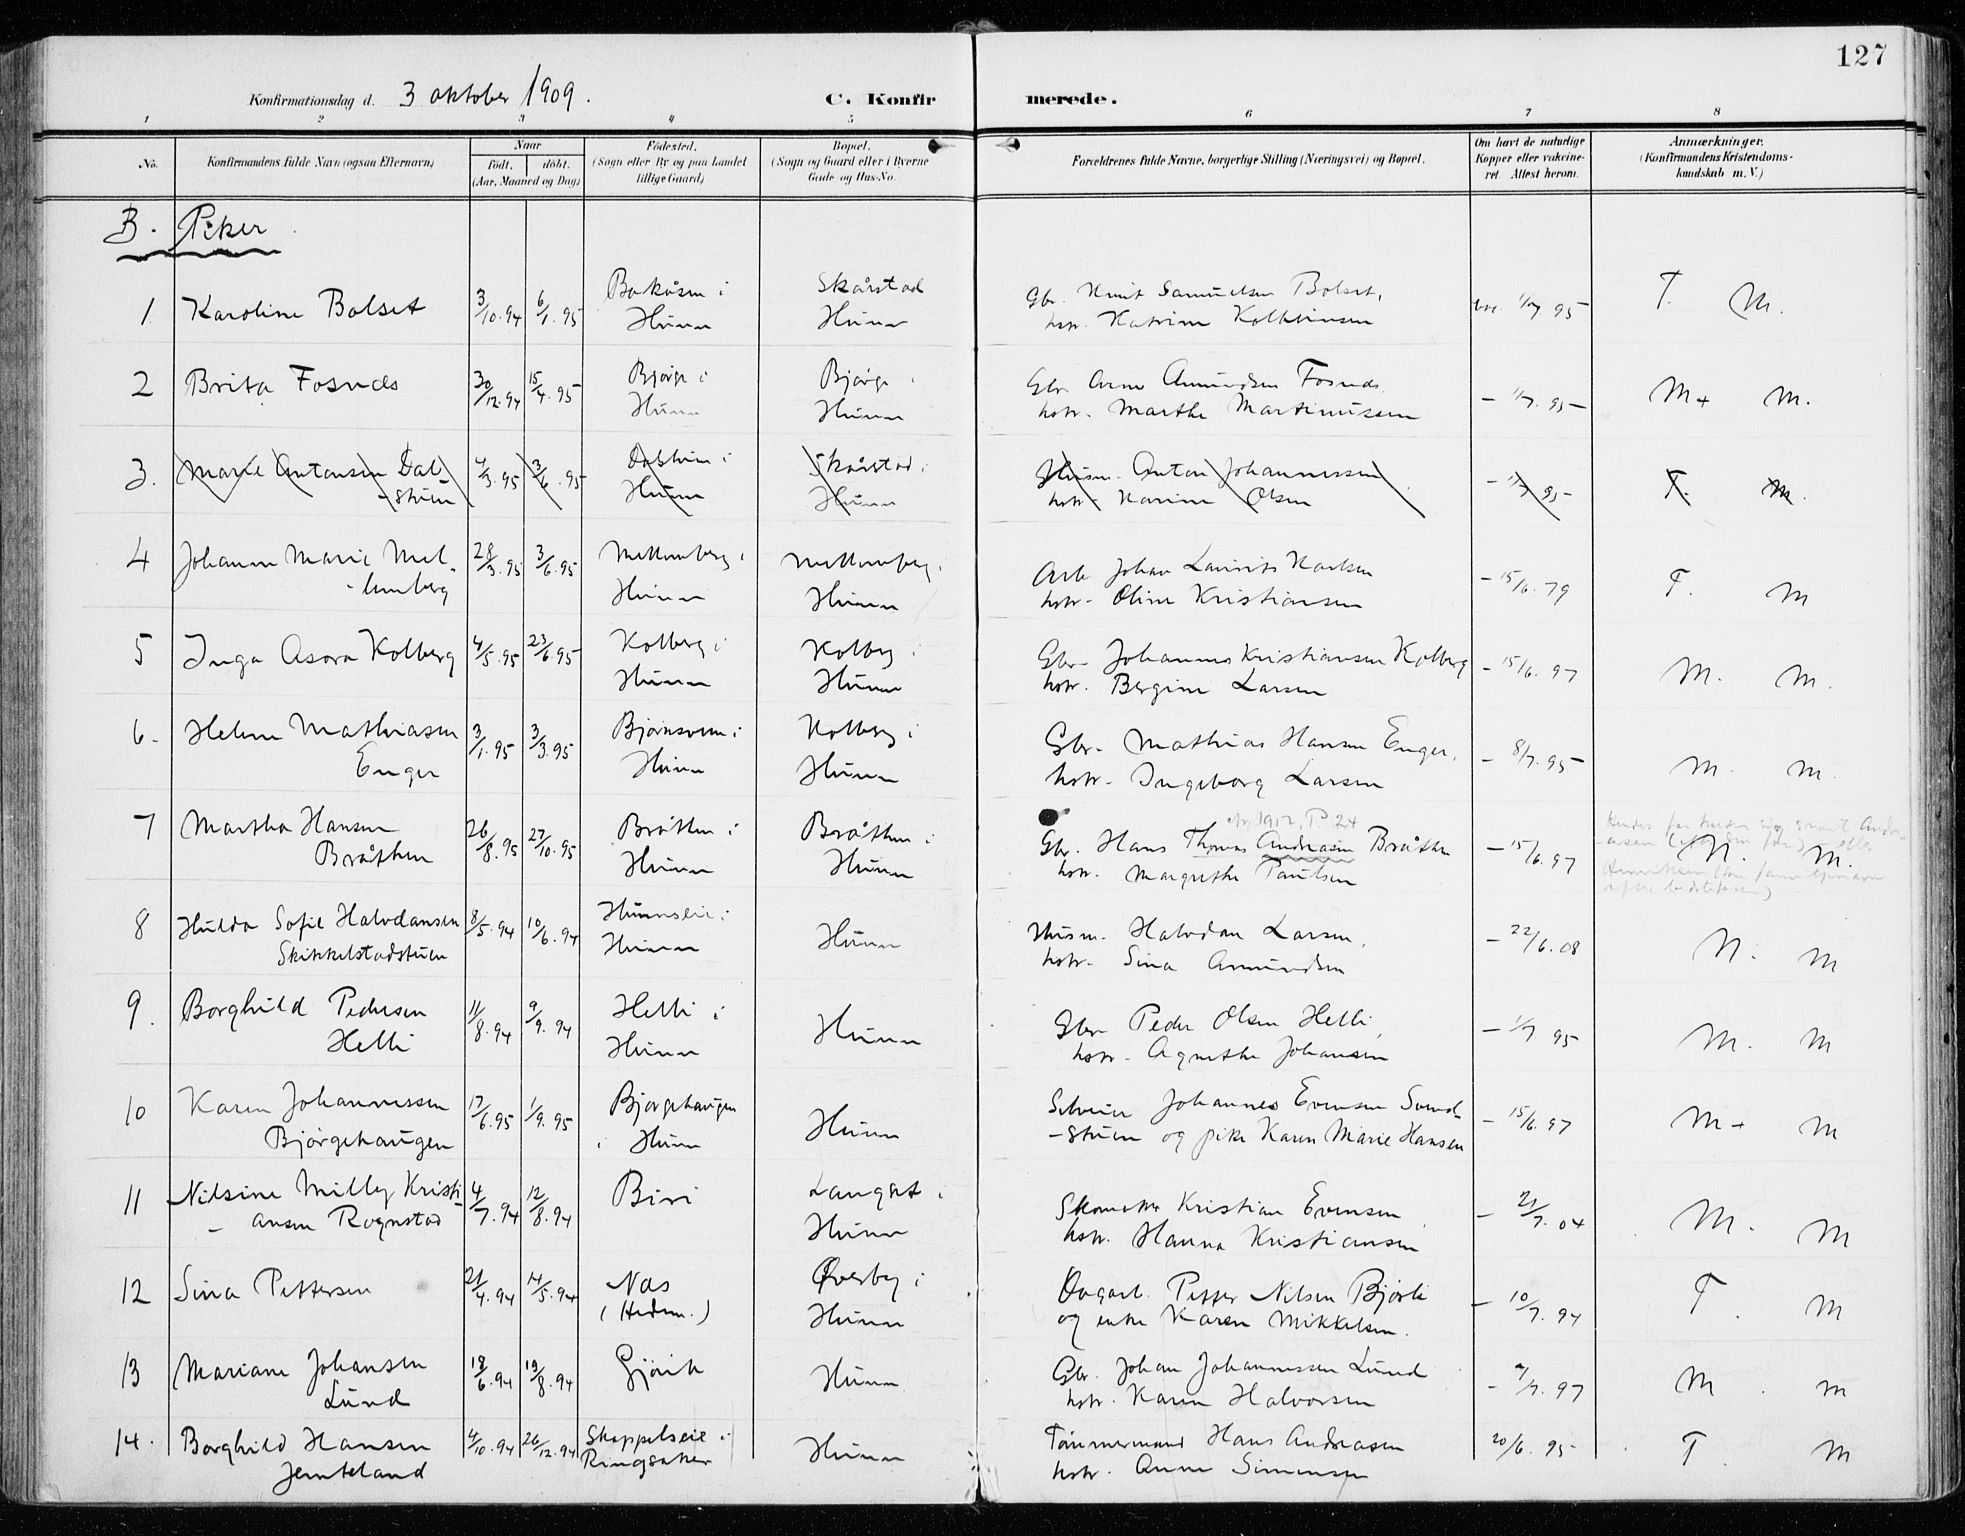 127
Konfirmationsdag d. 3 oktober 1909.
C. Konfirmerede.
1 2 3 4 5 6 7 8
No. Konfirmandens fulde Navn (ogsaa Efternavn) Naar født. døbt. (Aar, Maaned og Dag) Fødested. (Sogn eller By og paa Landet tillige Gaard) Bopæl. (Sogn og Gaard eller i Byerne Gade og Hus-No. Forældrenes fulde Navne, borgerlige Stilling (Næringsvei) og Bopæl. Om havt de naturlige Kopper eller vakcineret Attest herom. Anmærkninger. (Konfirmandens Kristendomskundskab m. V.)
B. Piker
1 Karoline Bolset 3/10.94 6/1.95 Bakåsen i Hunn Skårstad Hunn
Gbr. Knut Samuelsen Bolset, hstr. Katrine 95 T. M.
2 Brita Fosnæs 30/12.94 15/4.95 Bjørge i Hunn Bjørge i Hunn
Gbr. Arne Amundsen Fosnæs hstr. Marthe Martinussen – 1/7.95 – M+ M.
3. Marie Antonsen Dal-stuen 4/3.95 3/6.95 Dalstuen i Hunn Skårstad i Hunn
Husm. Anton Johannessen hstr. Karine Olsen – 1/7 95 – T. M.
4 Johanne Marie Mel-lumberg 28/3.95 3/6.95 Mellumberg i Hunn Mellumberg i Hunn
Arb Johan Laurits Karlsen hstr. Oline Kristiansen – 15/6.79 T. M
5 Inga Asora Kolberg 4/5.95 23/6.95 Kolberg i Hunn Kolberg i Hunn
Gbr. Johannes Kristiansen Kolberg hstr. Bergine Larsen – 15/6.97 M. M.
6. Helene Mathiasen Enger 3/1.95 3/3.95 Bjørnsveen i Hunn Kolberg i Hunn
Gbr. Mathias Hansen Enger, hstr. Ingeborg Larsen – 8/7.95 M. M.
7 Martha Hansen Bråthen 26/8.95 27/10.95 Bråthen i Hunn Bråthen i Hunn
1912, P 24
Gbr. Hans Thomas Andreasen Bråthen hstr. Margrethe Paulsen – 15/6.97 N. M.
8 Hulda Sofie Halvdansen Skikkelstadstuen 8/5.94 10/6.94 Hunnseie i Hunn Hunn
Husm. Halvdan Larsen, hstr. Sina Amundsen – 22/6.08 N. M
9. Borghild Pedersen Helli 11/8.94 9/9.94 Helli i Hunn Hunn
Gbr Peder Olsen Helli, hstr. Agnethe Johansen – 1/7 95 M. M
10 Karen Johannessen Bjørgehaugen 17/6.95 1/9.95 Bjørgehaugen i Hunn Hunn
Johannes Evensen Sund-stuen og pike Karen Marie Hansen – 15/6.97 M+ M
11 Nilsine Milly Kristi-ansen Rognstad 4/7.94 12/8.94 Biri Langset i Hunn
Skomaker Kristian Evensen hstr. Hanna Kristiansen – 21/7.04 M. M
12 Sina Pettersen 21/4.94 14/5.94 Næs (Hedm.) Øverby i Hunn
Dagarb. Petter Nilsen Bjørli og enke Karen Mikkelsen. – 10/7.94 T. M
13 Mariane Johansen Lund 18/6.94 19/8.94 Gjøvik Hunn
Gbr. Johan Johannessen Lund hstr. Karen Halvorsen 97 M. M
14. Borghild Hansen Jemteland 4/10.94 26/12.94 Skappelseie i Ringsaker Hunn
Tømmermand Hans Andreasen hstr. Anne Simensen 20/6.95 T. M